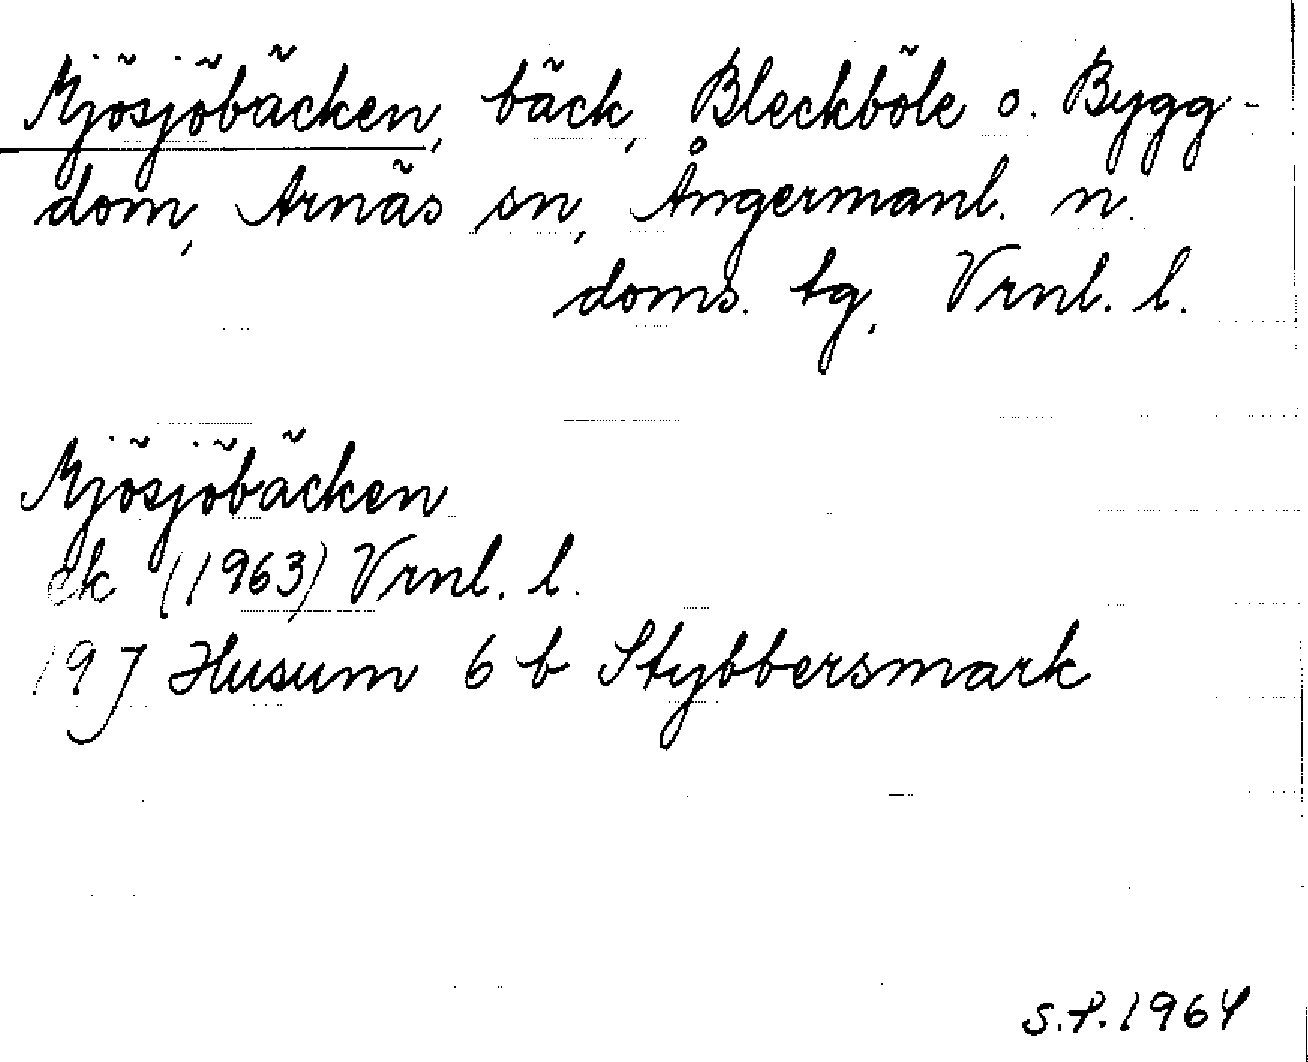 Mjösjöbäcken, bäck, Bleckböle o. Bygg-
dom, Arnäs sn, Ångermanl. n.
doms. tg, Vrnl. l.
Mjösjöbäcken
ek (1963) Vrnl. l.
19 J Husum 6 b Stybbersmark
S.P. 1964